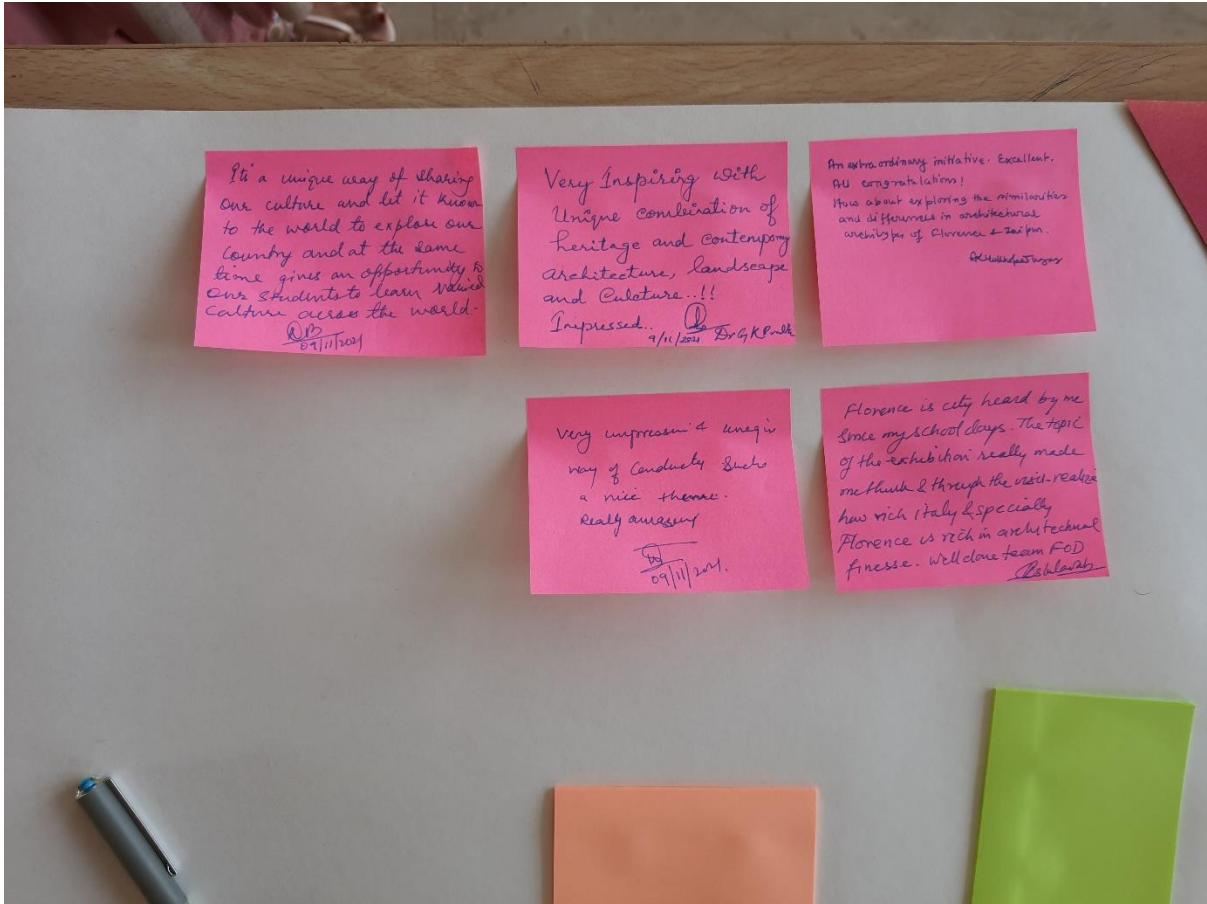 Its a unique way of sharing
our culture and let it know
to the world to explore our
country and at the same
time gives an opportunity to
our students to learn varied
culture across the world.
09/11/2021
Very Inspiring with
Unique combination of
heritage and contempory
architecture, landscape
and Culature..!!
Impressed..
9/11/2021 Dr G K
An extraordinary initiative. Excellent.
All congratulations!
How about exploring the similarities
and differences in architectural
of Florence & Jaipur.
Very &
way of Such
a nice theme.
Really amazing
09/11/2021.
Florence is city heard by me
Since my school days. The topic
of the exhibition really made
me think & through the visit realize
how rich Italy & specially
Florence is rich in architechnal
finesse. Well done team FOD